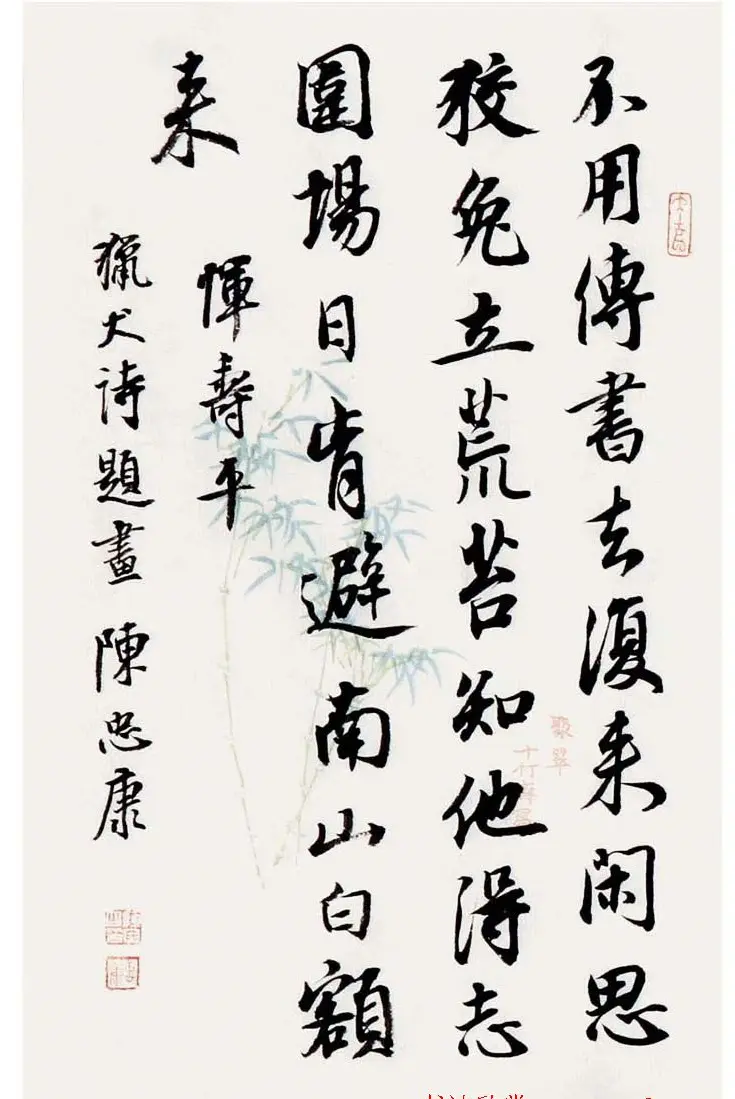 不用傳書去復来閑思
狡兔立荒苔知他得志
圍場日肯避南山白額
来
惲壽平
獵犬詩題畫 陳忠康
聚翠